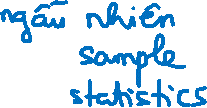 ngẫu nhiên
sample
statistics